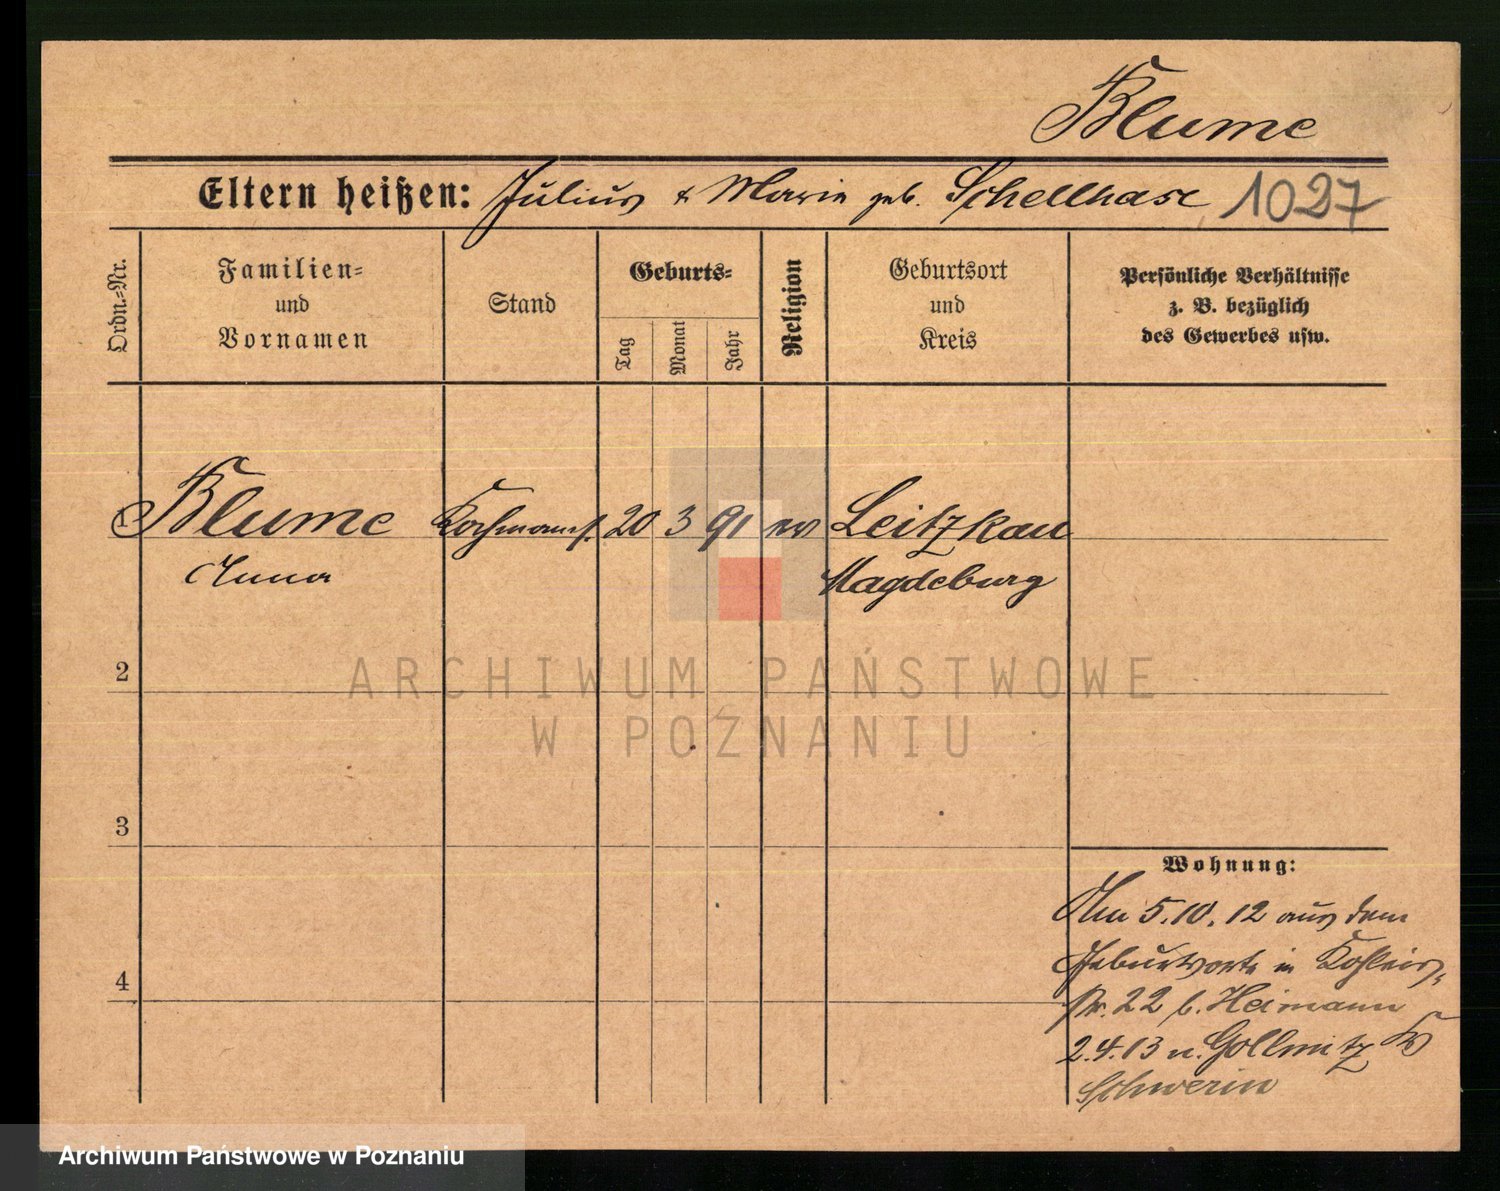 Blume
Eltern heißen: Julius & Marie geb. Schellhase 1027
Ordn.-Nr.
Familien-
und
Vornamen
Stand
Geburts-
Tag
Monat
Jahr
Religion
Geburtsort
und
Kreis
Persönliche Verhältnisse
z. B. bezüglich
des Gewerbes usw.
Blume 20 3 91 ev Leitzkau
Anna Magdeburg
2
ARCHIWUM PAŃSTWOWE
W POZNANIU
3
Wohnung:
Am 5.10.12 aus dem
Geburtsorte in
4
str. 22 b. Heimann
2.4.13 n. Gollmitz
Schwerin
Archiwum Państwowe w Poznaniu